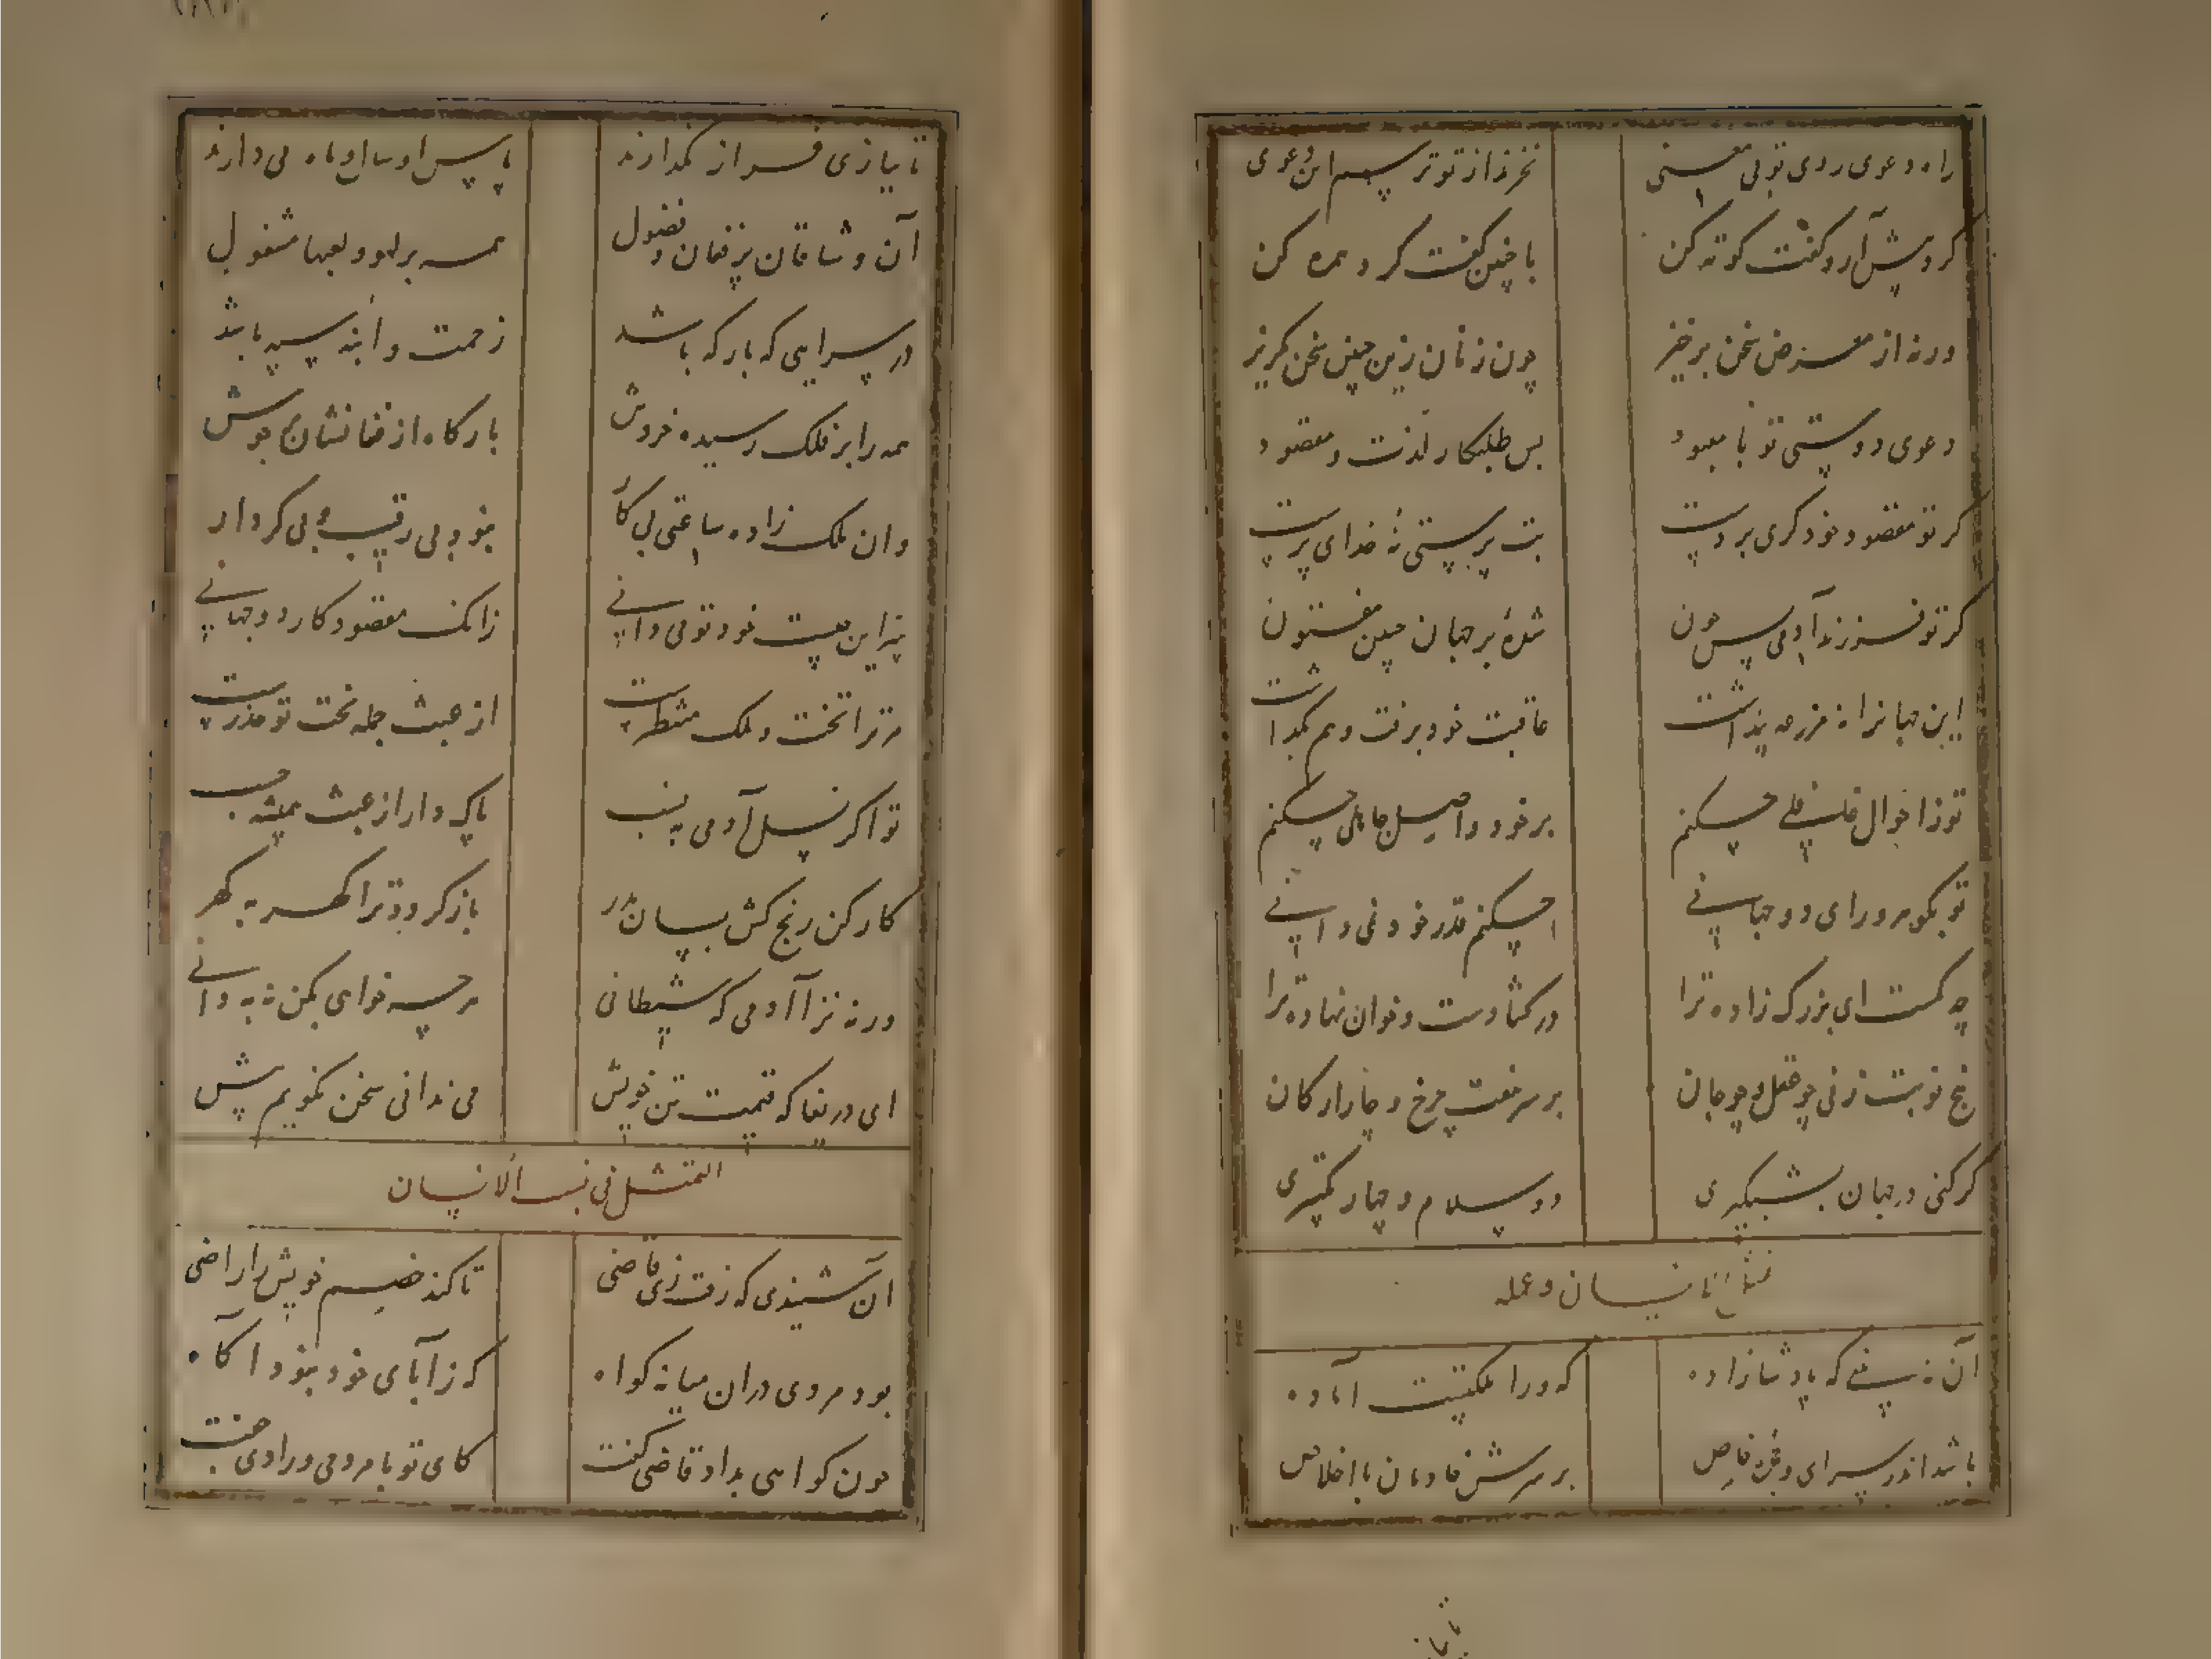 راه دعوی روی تو بی معنی نخرند از تو ترسم این دعوی
کردش آر و گفت کوته کن با چنین گفت کرد همره کن
ورنه از معرض سخن برخیز چون زنان زین چنین سخن بگریز
دعوی دوستی تو با معبود پس طلبکار لذت و مقصود
کر تو مقصود خود کری بر دست بت پرستی نه خدای پرست
کر تو فرزند آدمی پس چون شدهٔ بر جهان چنین مفتون
این جهانرا نه مزرعه پنداشت عاقبت خود برفت و هم بگذاشت
تو ز احوال چکنم بر خود و اصل جاهلی چکنم
تو بگوهر ورای دو جهانی چکنم قدر خود نمی دانی
چه کمست ای بزرگ زاده ترا در گشادست و خوان نهاده ترا
پنج نوبت زنی چو عقل و چو جان بر سر هفت چرخ و چار ارکان
کر کنی در جهان بشبکیری دو سلام و چهار تکبیری
الانسان و عمله
آن نه بینی که پادشازاده که ورا مملکتست آماده
باشد اندر سرای وی خاص بر سرش خادمان با اخلاص
تا ببازی فراز نگذارند پاس او سال و ماه می دارند
آن وشاقان پر فغان و فضول همه بر لهو و لعبها مشغول
در سرایی که بارکه باشد زحمت و انبه سپه باشد
همه را بر فلک رسیده خروش بارکاه از فغانشان بجوش
وان ملک زاده ساعتی بی کار نبود بی رقیب و بی کردار
نز این چیست خود تو می دانی زانک مقصود کار دو جهانی
مر ترا تخت و ملک منتظرست از عبث جمله تخت تو حذرست
تو اگر نسل آدمی به نسب پاک دار از عبث همیشه حسب
کار کن رنج کش بسان پدر باز کردد ترا کهر به کهر
ورنه نز آدمی که شیطانی هر چه خواهی بکن نه به دانی
ای دریغا که قیمت تن خویش می ندانی سخن نکویم بیش
التمثل فی نسب الانسان
آن شنیدی که رفت زی قاضی تا کند خصم خویش را راضی
بود مردی در آن میانه کواه که ز آبای خود نبود آکاه
چون کواهی بداد قاضی گفت کای تو با مردمی و رادی جفت